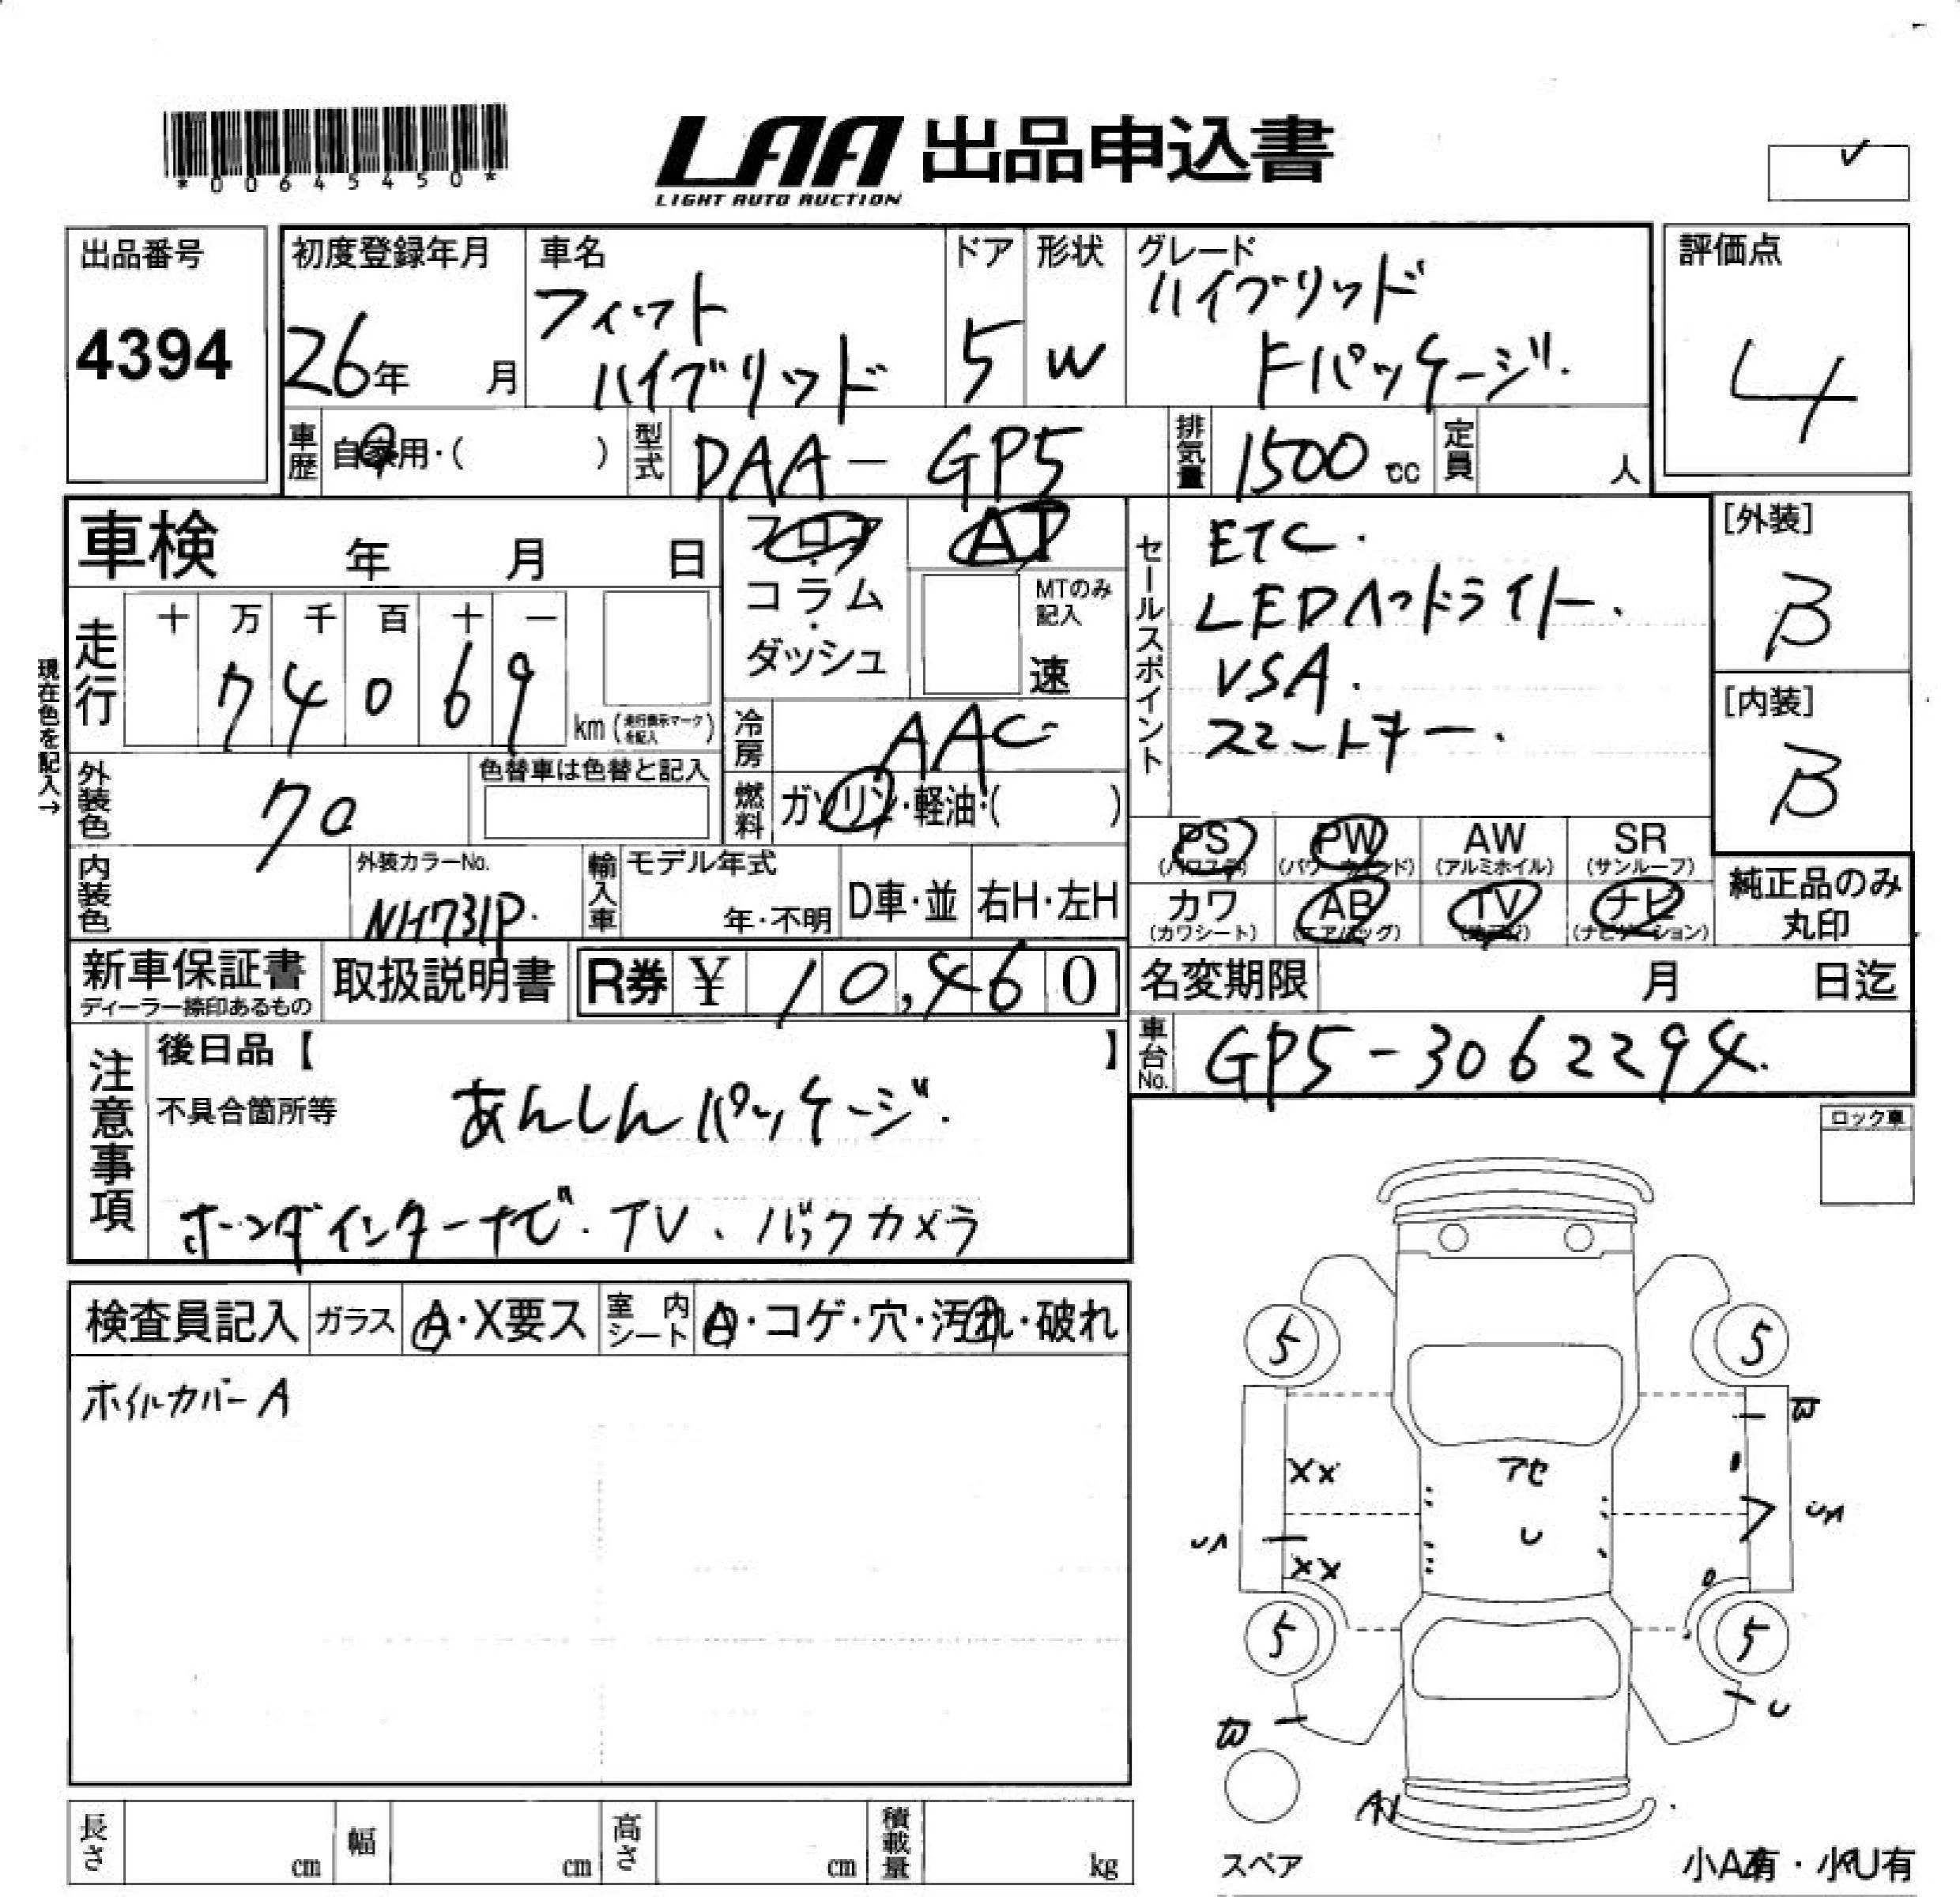 *00645450*
LAA 出品申込書
LIGHT AUTO AUCTION
出品番号
4394
初度登録年月
26年 月
車名
フィット
ハイブリッド
ドア
5
形状
W
グレード
ハイブリッド
Fパッケージ.
評価点
4
車歴 自家用・( )
型式 DAA-GP5
排気量 1500 cc
定員 人
車検 年 月 日
フロア・コラム・ダッシュ
AT
MTのみ記入
速
セールスポイント
ETC.
LEDヘッドライト.
VSA.
スマートキー.
[外装]
B
[内装]
B
現在色を記入→
走行
十 万 千 百 十 一
7 4 0 6 9
km (走行表示マークを記入)
冷房 AAC
燃料 ガソリン・軽油・( )
外装色 70
色替車は色替と記入
内装色
外装カラーNo.
NH731P.
輸入車
モデル年式
年・不明
D車・並
右H・左H
PS (パワステ)
PW (パワーウインド)
AW (アルミホイル)
SR (サンルーフ)
カワ (カワシート)
AB (エアバッグ)
TV
ナビ (ナビゲーション)
純正品のみ
丸印
新車保証書
ディーラー捺印あるもの
取扱説明書
R券 ¥ 10,460
名変期限 月 日迄
車台No. GP5-3062294.
注意事項
後日品【 】
不具合箇所等
あんしんパッケージ.
ホンダインターナビ.TV、バックカメラ
ロック車
検査員記入
ガラス A・X要ス
室内シート A・コゲ・穴・汚れ・破れ
ホイルカバーA
5
5
XX
アセ
U
XX
5
5
U
スペア
小A有・小U有
長さ cm
幅 cm
高さ cm
積載量 kg